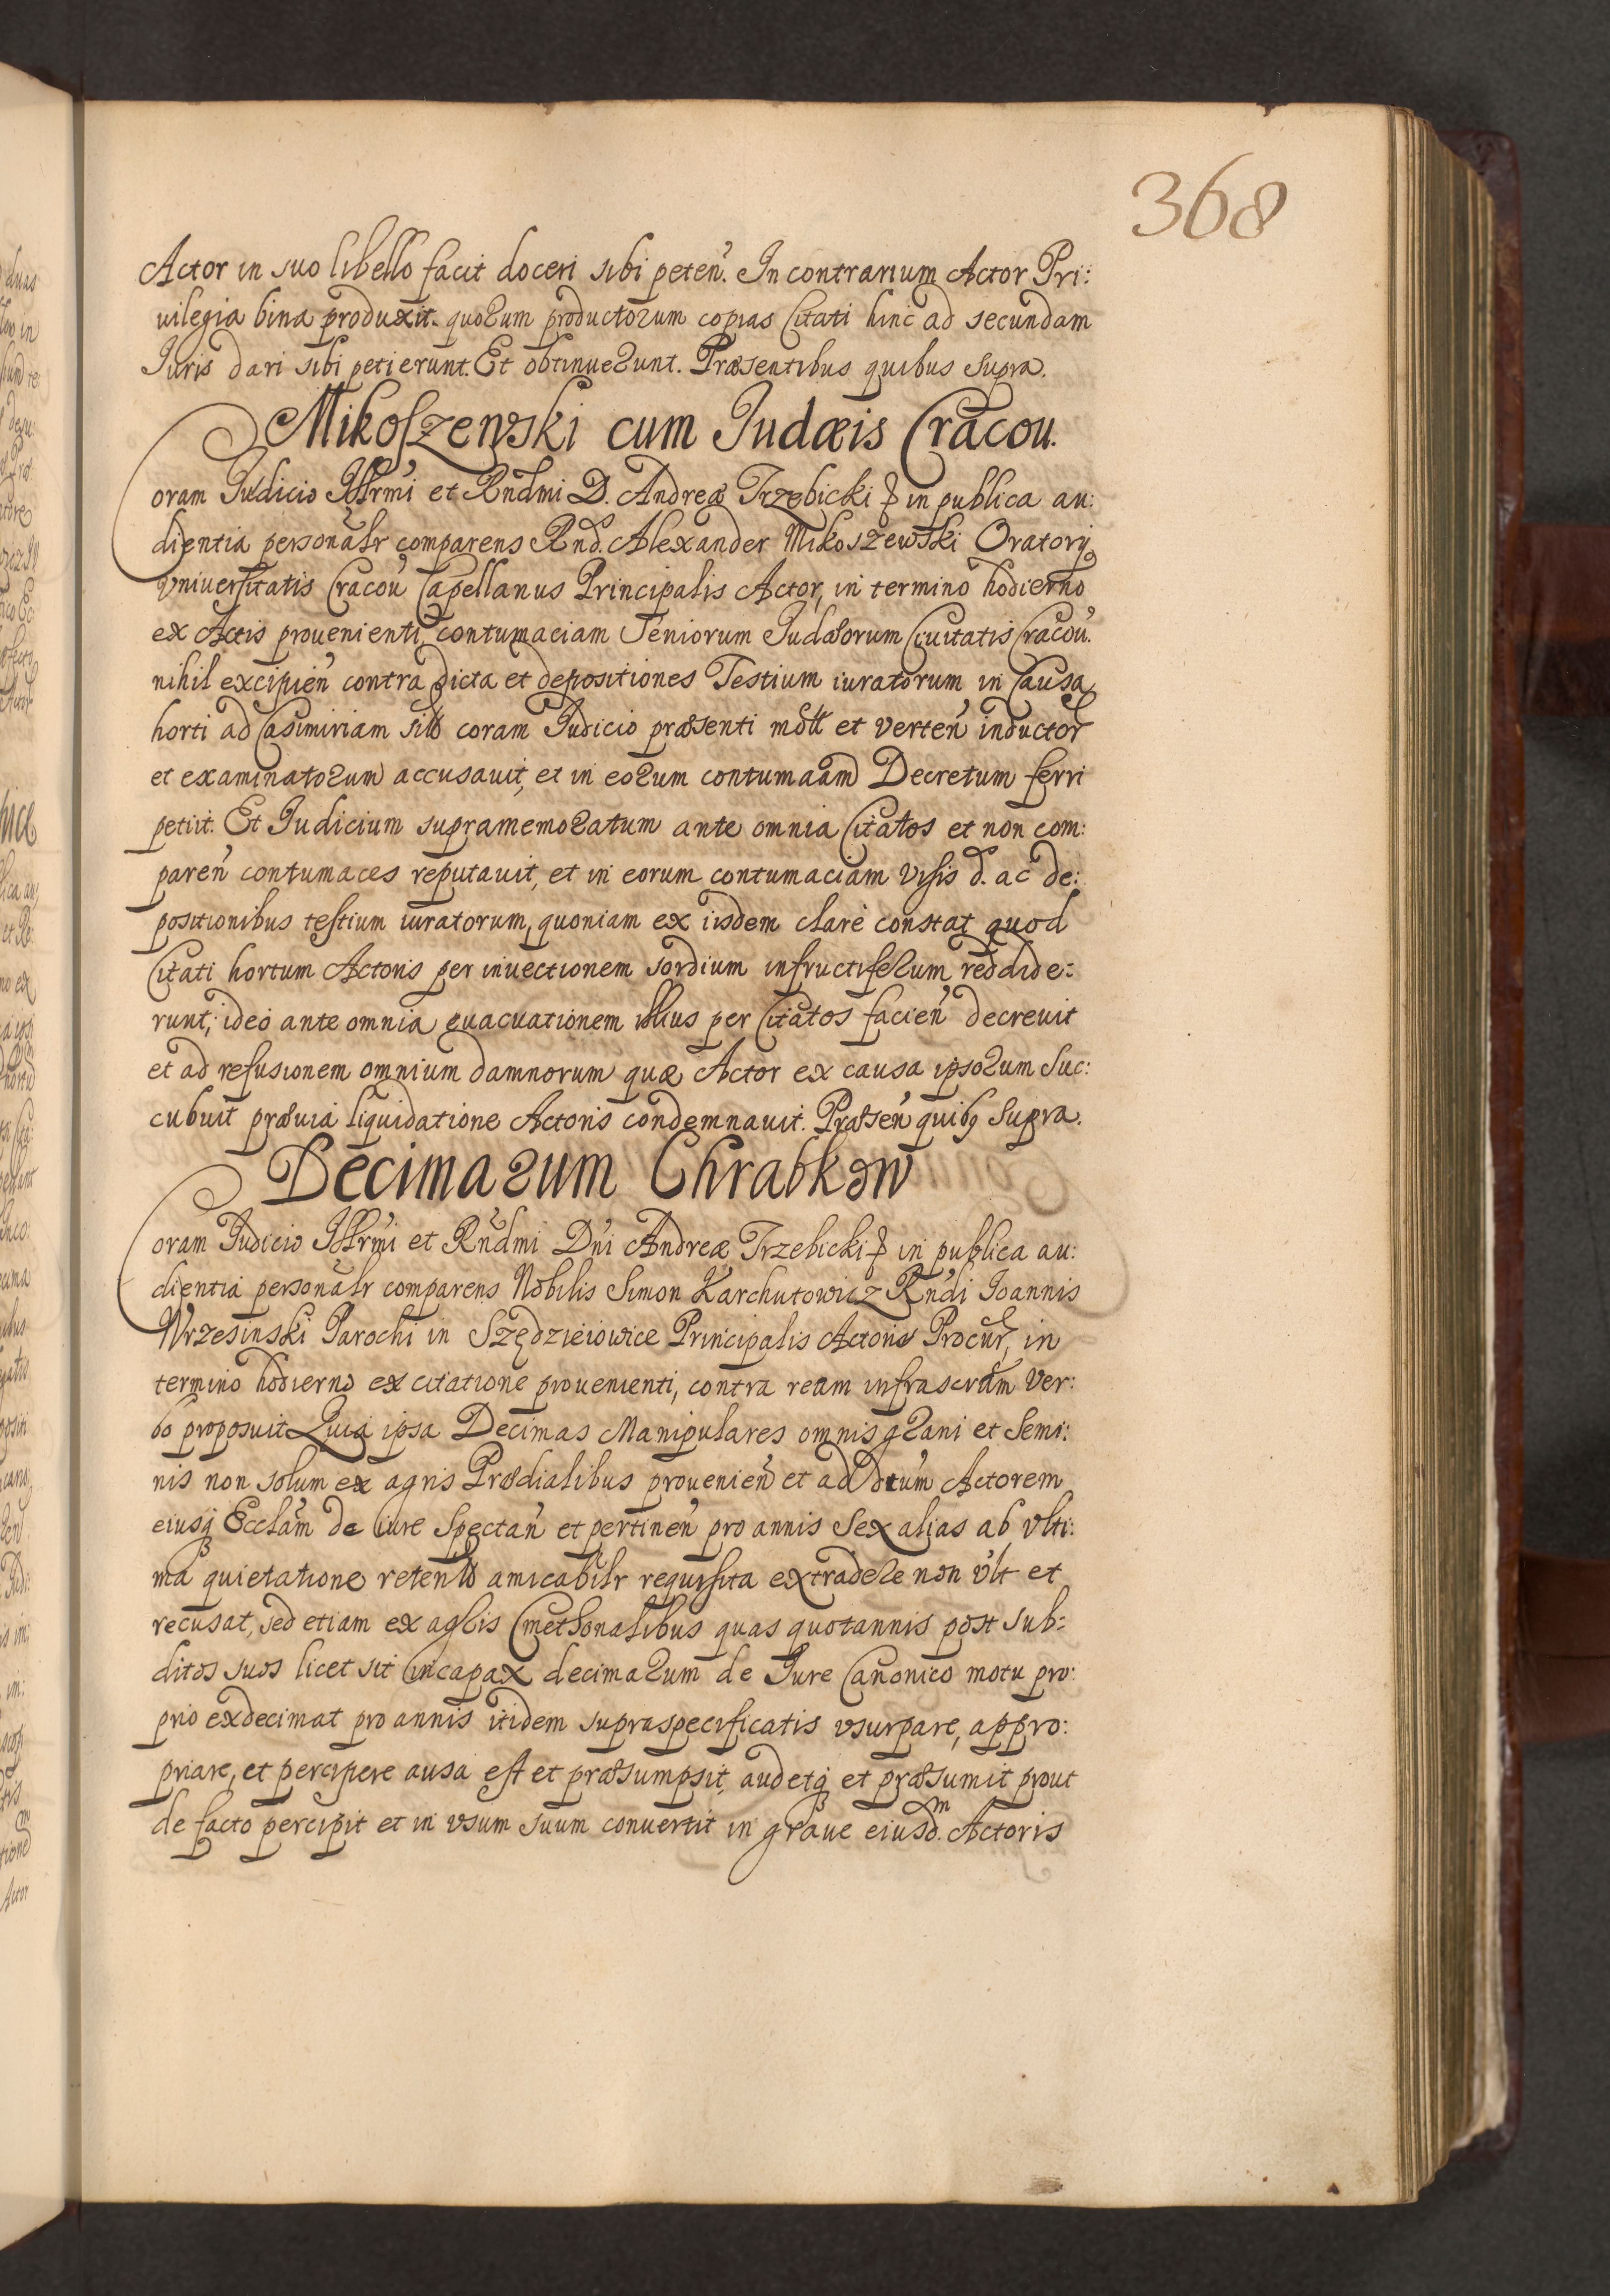 368
Actor in suo libello facit doceri sibi peteń. In contrarium Actor Pri:
uilegia bina produxit. quorum productorum copias Citati hinc ad secundam
Iuris dari sibi petierunt. Et obtinuerunt. Præsentibus quibus supra.
Mikoszewski cum Judæis Cracou.
Coram Judicio Illrmi et Rndmi D. Andreæ Trzebicki in publica au:
dientia personalr comparens Rnd. Alexander Mikoszewski Oratorij
Vniuersitatis Cracou Capellanus Principalis Actor, in termino hodierno
ex Actis prouenienti, contumaciam Seniorum Judæorum Ciuitatis Cracou.
nihil excipień contra dicta et depositiones Testium iuratorum in Causa
horti ad Casimiriam coram Judicio præsenti et verteń inductor
et examinatorum accusauit, et in eorum contumaciam Decretum ferri
petiit. Et Judicium supramemoratum ante omnia Citatos et non com:
pareń contumaces reputauit, et in eorum contumaciam visis d. ac de:
positionibus testium iuratorum, quoniam ex iisdem clarè constat quod
Citati hortum Actoris per inuectionem sordium infructiferum reddide:
runt, ideo ante omnia euacuationem illius per Citatos facień decreuit
et ad refusionem omnium damnorum quæ Actor ex causa ipsorum suc:
cubuit præuia liquidatione Actoris condemnauit. Præseń quibꝫ supra.
Decimarum Chrabkow
Coram Judicio Illrmi et Rndmi Dni Andreæ Trzebicki in publica au:
dientia personalr comparens Nobilis Simon Karchutowicz Rndi Joannis
Wrzesinski Parochi in Szędzieiowice Principalis Actoris Procur, in
termino hodierno ex citatione prouenienti, contra ream infrascram ver:
bo proposuit Quia ipsa Decimas Manipulares omnis grani et Semi:
nis non solum ex agris Prædialibus prouenień et ad dtum Actorem
eiusqꝫ Ecclam de iure spectań et pertineń pro annis sex alias ab vlti:
ma quietatione retent amicabilr requisita extradere non vult et
recusat, sed etiam ex agris Cmethonalibus quas quotannis post sub:
ditos suos licet sit incapax decimarum de Jure Canonico motu pro:
prio exdecimat pro annis itidem supraspecificatis vsurpare, appro:
priare, et percipere ausa est et præsumpsit, audetqꝫ et præsumit prout
de facto percipit et in vsum suum conuertit in graue eiusdm. Actoris